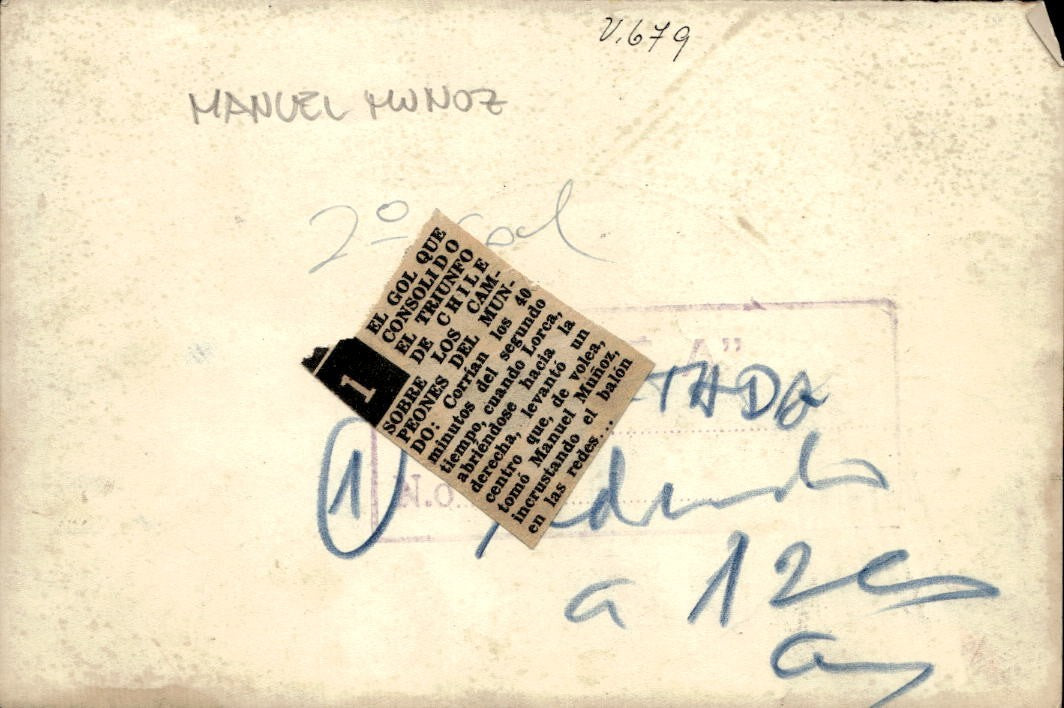 V.679
MANUEL MUÑOZ
2º Gol
1
EL GOL QUE
CONSOLIDO
EL TRIUNFO
DE CHILE
SOBRE LOS CAM-
PEONES DEL MUN-
DO: Corrían los 40
minutos del segundo
tiempo, cuando Lorca,
abriéndose hacia la
derecha, levantó un
centro que, de volea,
tomó Manuel Muñoz,
incrustando el balón
en las redes...
1
a 12 c